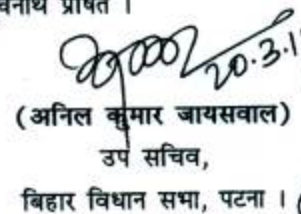 प्रेषित ।
20.3.1
(अनिल कुमार जायसवाल)
उप सचिव,
बिहार विधान सभा, पटना ।